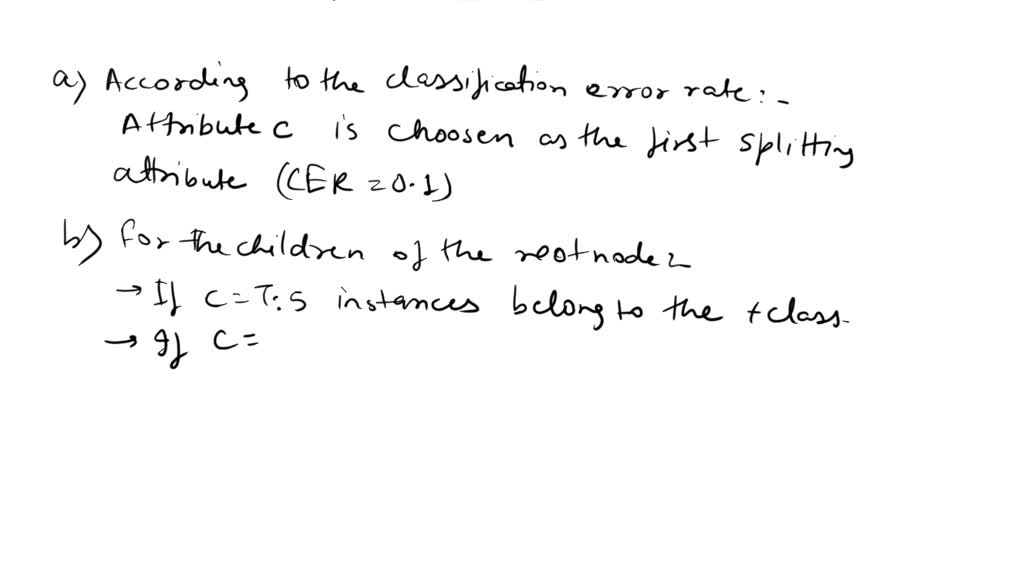 a) According to the classification error rate:-
Attribute C is choosen as the first splitting
attribute (CER = 0.1)
b) for the children of the root node:
→ If C = T: 5 instances belong to the + class.
→ If C =